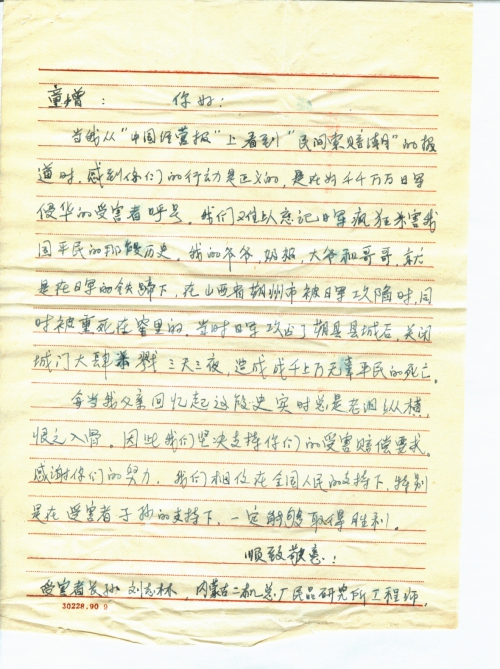 童增： 你好：
当我从“中国经营报”上看到“民间索赔潮”的报
道时，感到你们的行动是正义的，是在为千千万万日军
侵华的受害者呼号。我们难以忘记日军疯狂杀害我
国平民的那段历史。我的爷爷，奶奶，大爷和哥哥，就
是在日军的铁蹄下，在山西省朔州市被日军攻陷时，同
时被熏死在窖里的，当时日军攻占了朔县县城后，关闭
城门大肆杀戮三天三夜，造成成千上万无辜平民的死亡。
每当我父亲回忆起这段史实时总是老泪纵横，
恨之入骨。因此我们坚决支持你们的受害赔偿要求。
感谢你们的努力，我们相信在全国人民的支持下，特别
是在受害者子孙的支持下，一定能够取得胜利。
顺致敬意！
受害者长孙 刘志林，内蒙古二机总厂民品研究所工程师，
30228.90 9